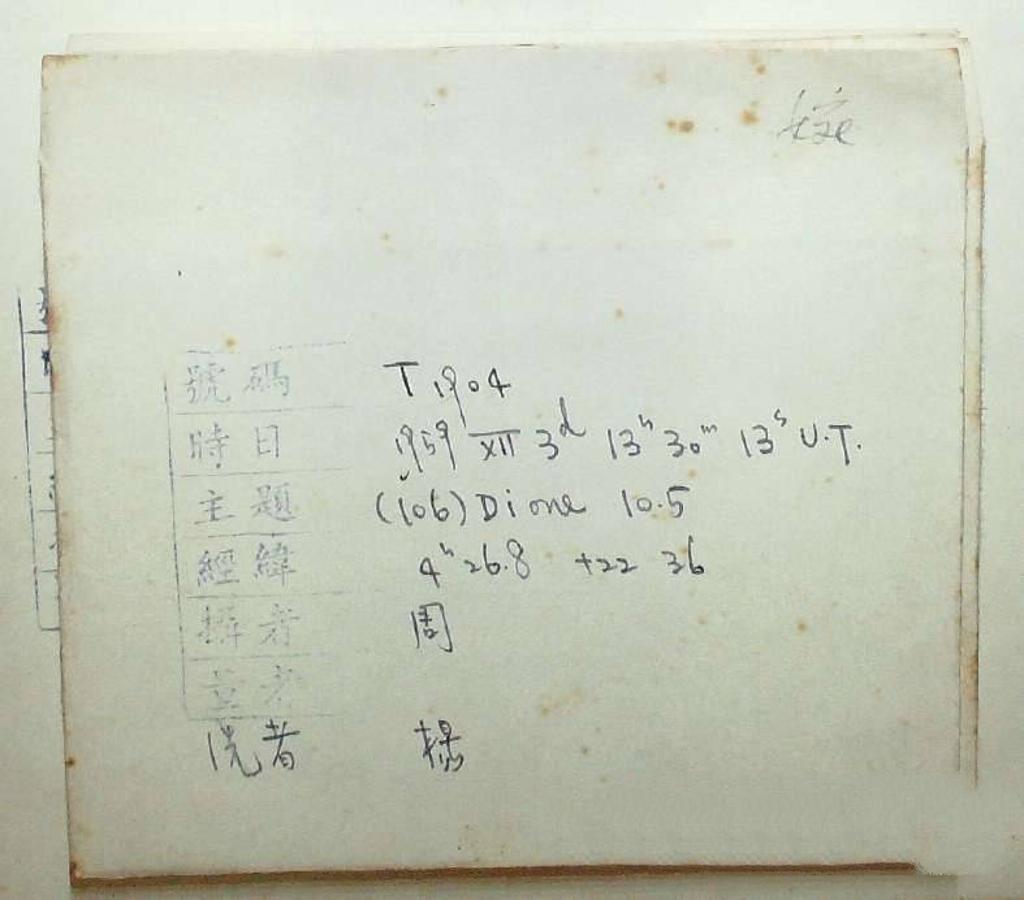 號碼 T 1904
時日 1959 XII 3ᵈ 13ʰ 30ᵐ 13ˢ U.T.
主題 (106) Dione 10.5
經緯 4ʰ 26.8 +22 36
攝者 周
量者
洗者 楊